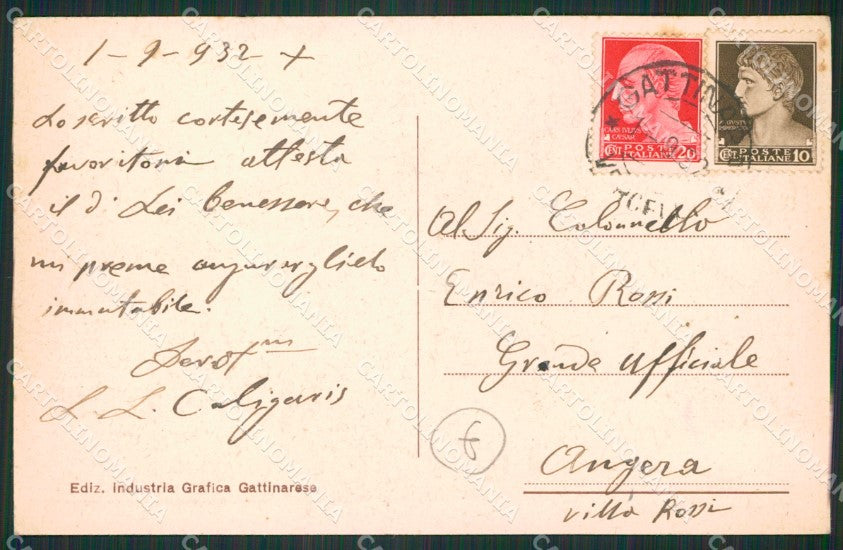 1-9-932 +
Lo scritto cortesemente
favoritomi attesta
il di Lei benessere, che
mi preme augurarglielo
immutabile.
Devot mo
L. L. Caligaris
Ediz. Industria Grafica Gattinarese
GATTINARA
CAIUS IVLIVS
CAESAR
POSTE
CENT ITALIANE 20
POSTE
CENT ITALIANE 10
Al Sig. Colonnello
Enrico Rossi
Grande Ufficiale
6
Angera
villa Rossi
CARTOLINOMANIA